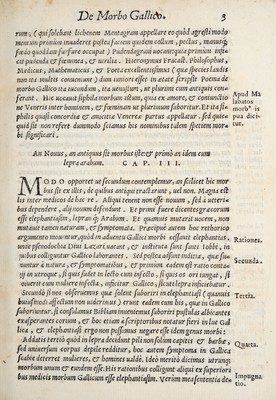 De Morbo Gallico. 3
rum, (qui solebant lichenem Montagram appellare eo quòd agresti modo
mentum primùm inuaderet postea faciem quidem collum, pectus, manusq́;
scæua quadam furfure occupat) Pudendagram uocant quia primùm infi-
cit pudenda & fœminea, & uirilia. Hieronymus Fracast. Philosophus,
Medicus, Mathematicus, & Poeta excellentissimus (quæ species laudis
non ita multis conuenit) cum uniuersi esset in ætate scripsit Poema de
morbo Gallico ita iucundum, ita uenustum, ut plurimi cum antiquis con-
ferant. Hic uocauit Siphila morbum istum, quia ex amore, & coniunctio
ne Veneris inter homines, & fœminas ut plurimum suboritur. Et est
philis quasi concordiæ & amicitiæ Venereæ partus appellatus. sed quic
quid sit non refert dummodo sciamus his nominibus talem speciem mor
bi significari.
Apud
morb° is
poa dici-
tur.
An Nouus, an antiquus sit morbus iste & primò an idem cum
lepra arabum. CAP. III.
MODO oportet ut secundum contemplemur, an scilicet hic mor
bus sit ex illis, de quibus antiqui tractarunt, uel non. Magna est
lis inter medicos de hac re. Aliqui tenent non esse nouum, sed à ueteri-
bus dependere, alij nouum defendunt. Et primi fuere dicentes graecorum
esse elephantiasim, lepramq́; Arabum. Et quamuis mutarit nomen, non
mutauit tamen naturam, & symptomata. Precipuè autem hoc rethorico
argumento mouentur, quòd in aduentu Gallici morbi cessauit elephantias.
unde xenodochia Diui Lazari uacant, & instituta sunt sancti Iobbi, in
quibus colliguntur Gallico laborantes. Sed postea assunt indicia, quæ su-
muntur à natura, & symptomatibus, & primùm eadem est ratio conta-
gij in utroque, si quis sudet in lecto cum infecto, si quis os ori iungat, si
iniuerit cum muliere infecta, inficitur Gallico, sicuti lepra inficiebatur.
Secundò sumo obseruamus quæ solent suboriri in elephantiasi (quamuis
huiusmodi affectum non uiderimus) erant eadem cum his, quæ in Gallico
suboriuntur. si consulamus Bibliam inueniemus suboriri pustulas albicantes
exasperantes corium, & hoc etiam à scriptoribus notatur fieri in lue Gal
lica, & elephantiasi ergo non possumus negare esse idem genus morbi.
Addatis tertiò quòd in lepra decidunt pili non solùm capitis & barbæ,
sed uniuersum corpus depile redditur, hoc autem symptoma in Gallica
scabie deterret mulieres, & homines ualdè. Ideò meritò dicimus utrunq́;
morbum unum & eundem esse. His rationibus colligunt aliqui ex superiori
bus medicis morbum Gallicum esse elephantiasim. Verùm mea sententia de-
Rationes.
Secunda.
Tertia.
Quarta.
Impugna
tio.